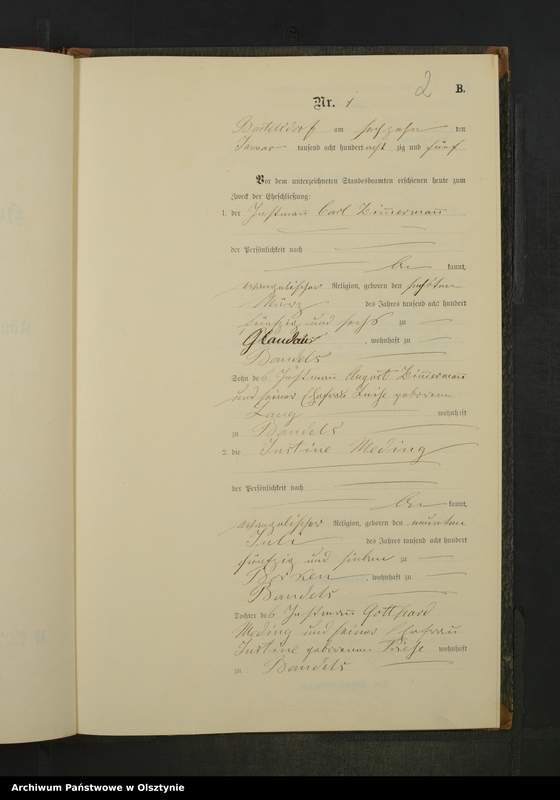 2
B.
Nr. 1
Bartelsdorf am sechszehn ten
Januar tausend acht hundert acht zig und fünf
Vor dem unterzeichneten Standesbeamten erschienen heute zum
Zweck der Eheschließung:
1. der Instmann Carl Zimmermann
der Persönlichkeit nach
be kannt,
evangelischer Religion, geboren den sechsten
März des Jahres tausend acht hundert
fünfzig und sechs zu
Glandau, wohnhaft zu
Bandels
Sohn des Instmann August Zimmermann
und seiner Ehefrau Luise geborenen
Lang wohnhaft
zu Bandels
2. die Justine Meding
der Persönlichkeit nach
be kannt,
evangelischer Religion, geboren den neunten
Juli des Jahres tausend acht hundert
fünfzig und sieben zu
Borken, wohnhaft zu
Bandels
Tochter des Instmann Gotthard
Meding und seiner Ehefrau
Justine geborenen wohnhaft
zu Bandels
Archiwum Państwowe w Olsztynie